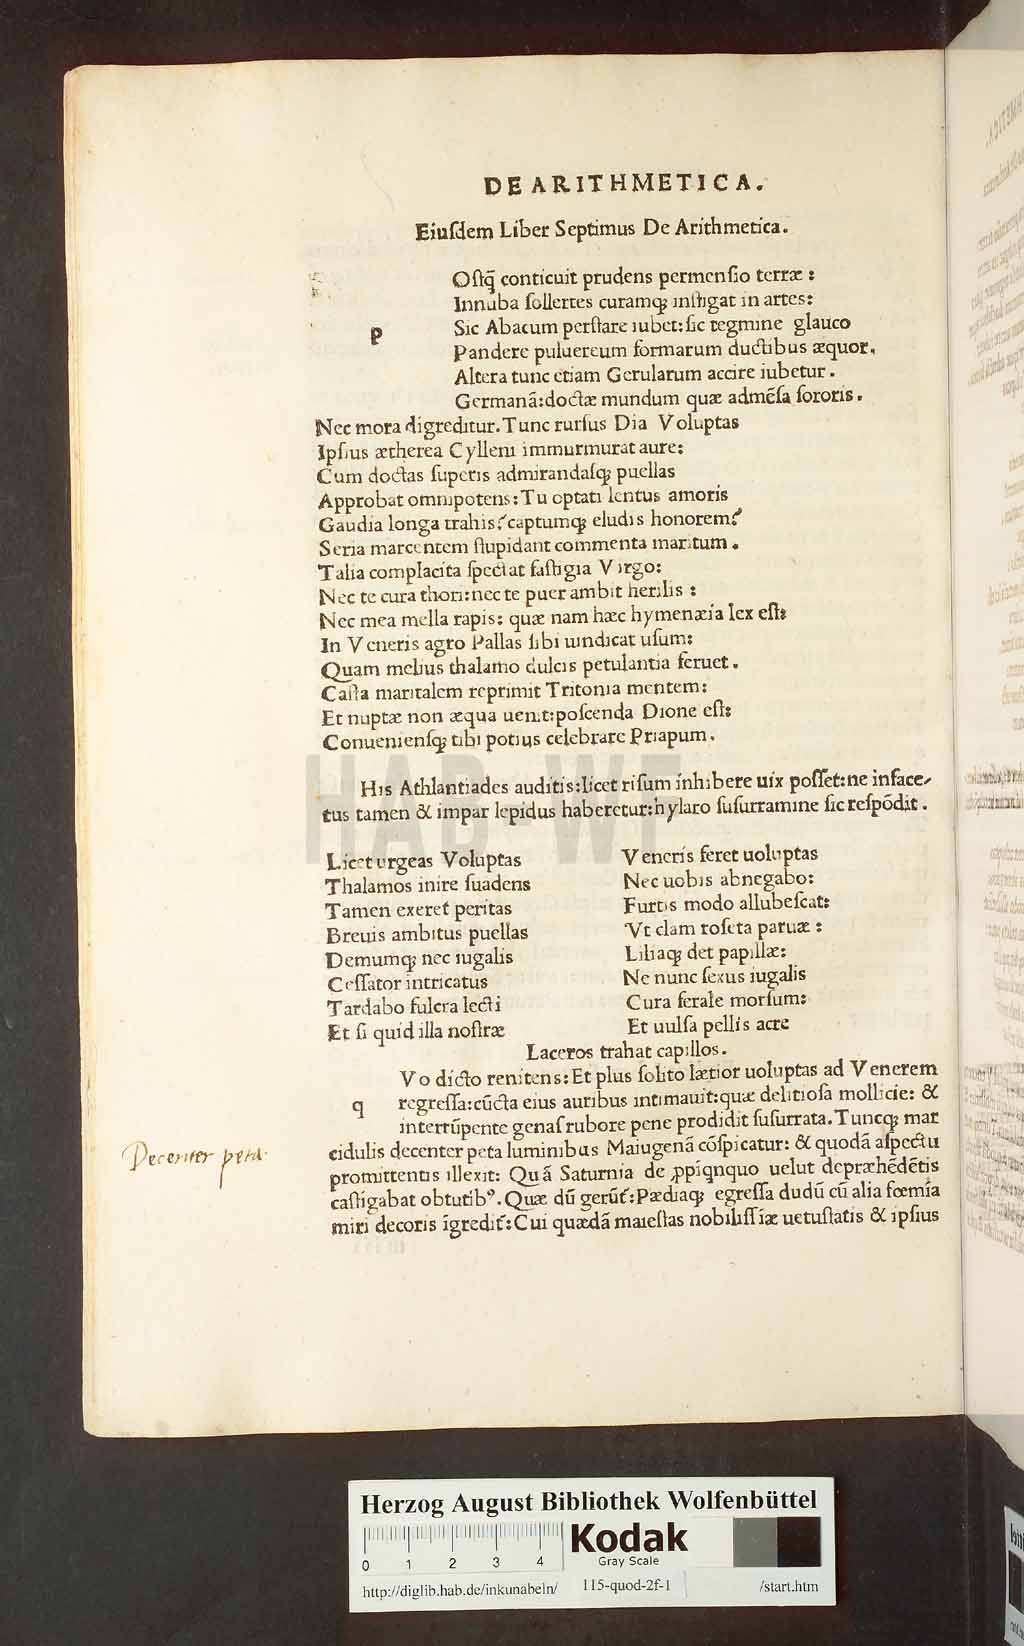 DE ARITHMETICA.
Eiuſdem Liber Septimus De Arithmetica.
p
Oſtꝙ̃ conticuit prudens permenſio terræ:
Innuba ſollertes curamq; inſtigat in artes:
Sic Abacum perſtare iubet: ſic tegmine glauco
Pandere puluereum formarum ductibus æquor.
Altera tunc etiam Gerularum accire iubetur.
Germanã: doctæ mundum quæ admẽſa ſororis.
Nec mora digreditur. Tunc rurſus Dia Voluptas
Ipſius ætherea Cylleni immurmurat aure:
Cum doctas ſuperis admirandaſq; puellas
Approbat omnipotens: Tu optati lentus amoris
Gaudia longa trahis? captumq; eludis honorem?
Seria marcentem ſtupidant commenta maritum.
Talia complacita ſpectat faſtigia Virgo:
Nec te cura thori: nec te puer ambit herilis:
Nec mea mella rapis: quæ nam hæc hymenæia lex eſt:
In Veneris agro Pallas ſibi uindicat uſum:
Quam melius thalamo dulcis petulantia feruet.
Caſta maritalem reprimit Tritonia mentem:
Et nuptæ non æqua uenit: poſcenda Dione eſt:
Conuenienſq; tibi potius celebrare Priapum.
His Athlantiades auditis: licet riſum inhibere uix poſſet: ne inface-
tus tamen & impar lepidus haberetur: hylaro ſuſurramine ſic reſpõdit.
Licet urgeas Voluptas
Thalamos inire ſuadens
Tamen exeret peritas
Breuis ambitus puellas
Demumq; nec iugalis
Ceſſator intricatus
Tardabo fulcra lecti
Et ſi quid illa noſtræ
Veneris feret uoluptas
Nec uobis abnegabo:
Furtis modo allubeſcat:
Vt clam roſeta paruæ:
Liliaq; det papillæ:
Ne nunc ſexus iugalis
Cura ferale morſum:
Et uulſa pellis acre
Laceros trahat capillos.
q
Vo dicto renitens: Et plus ſolito lætior uoluptas ad Venerem
regreſſa: cũcta eius auribus intimauit: quæ delitioſa mollicie: &
interrũpente genaſ rubore pene prodidit ſuſurrata. Tuncq; mar
cidulis decenter peta luminibus Maiugenã cõſpicatur: & quodã aſpectu
promittentis illexit: Quã Saturnia de ꝓpiqnquo uelut depræhẽdẽtis
caſtigabat obtutibꝰ. Quæ dũ gerũt̃: Pædiaq; egreſſa dudũ cũ alia fœmĩa
miri decoris ĩgredit̃: Cui quædã maieſtas nobiliſſĩæ uetuſtatis & ipſius
Decenter peta.
HAB-WF
Herzog August Bibliothek Wolfenbüttel
0 1 2 3 4
Kodak
Gray Scale
http://diglib.hab.de/inkunabeln/ 115-quod-2f-1 /start.htm